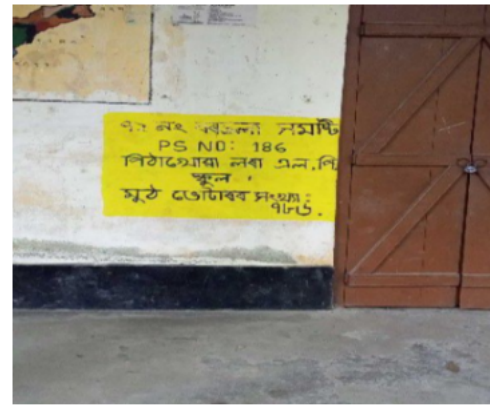 নং দৰঙ্গা সমষ্টি
PS NO: 186
পিঠাখোৱা লৰা এল.পি.
স্কুল .
মুঠ ভোটাৰৰ সংখ্যা:
৭৮৬.